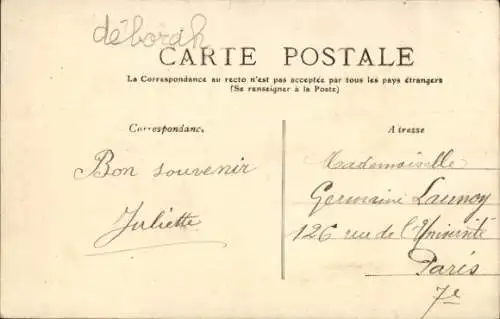 déborah
CARTE POSTALE
La Correspondance au recto n'est pas acceptée par tous les pays étrangers
(Se renseigner à la Poste)
Correspondance
Bon souvenir
Juliette
Adresse
Mademoiselle
Germaine Launoy
126 rue de l'Université
Paris
7e